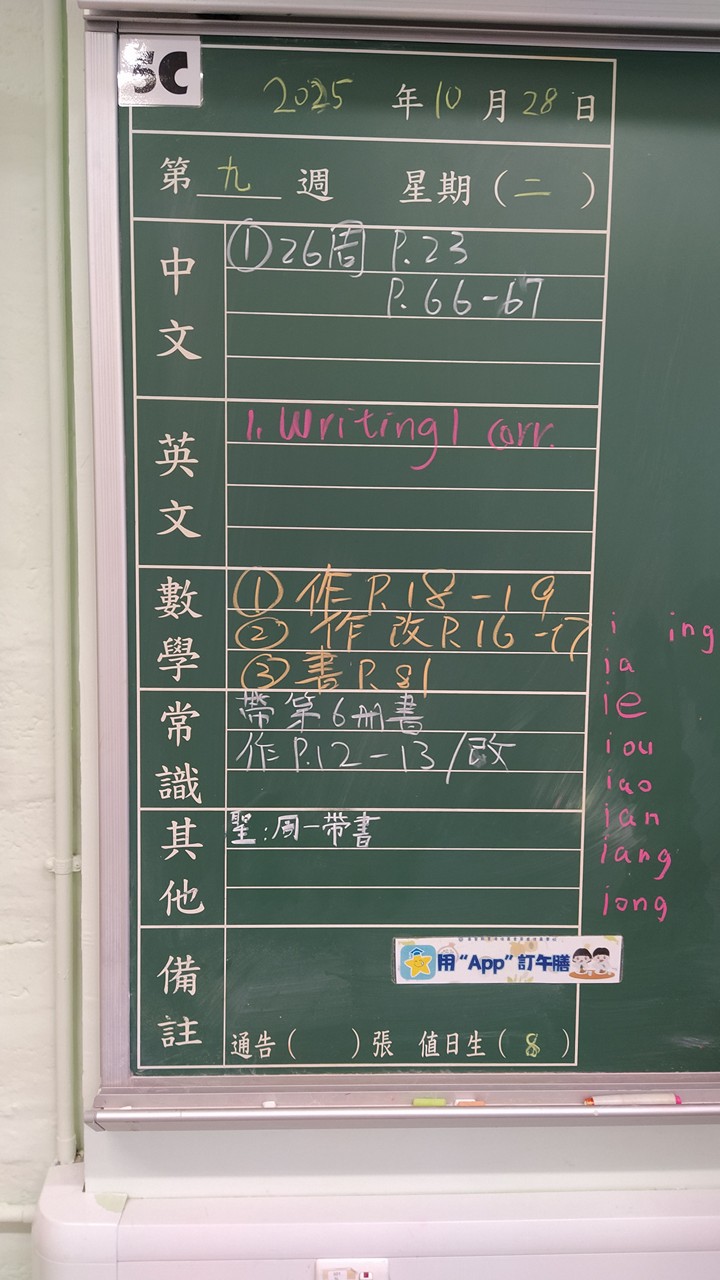 5C
2025 年 10 月 28 日
第 九 週 星期 ( 二 )
中文
① 26周 P.23
P.66-67
英文
1. Writing 1 corr.
數學
① 作 P.18-19
② 作 改 P.16-17
③ 書 P.81
常識
帶第6冊書
作 P.12-13/改
其他
聖:周一帶書
備註
用“App”訂午膳
通告 ( ) 張 值日生 ( 8 )
i ing
ia
ie
iou
iao
ian
iang
iong